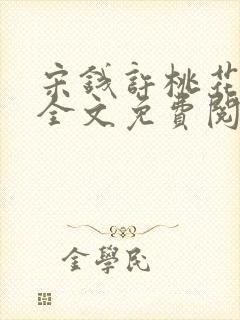 宋钱許桃花
全文免費閱
金學民